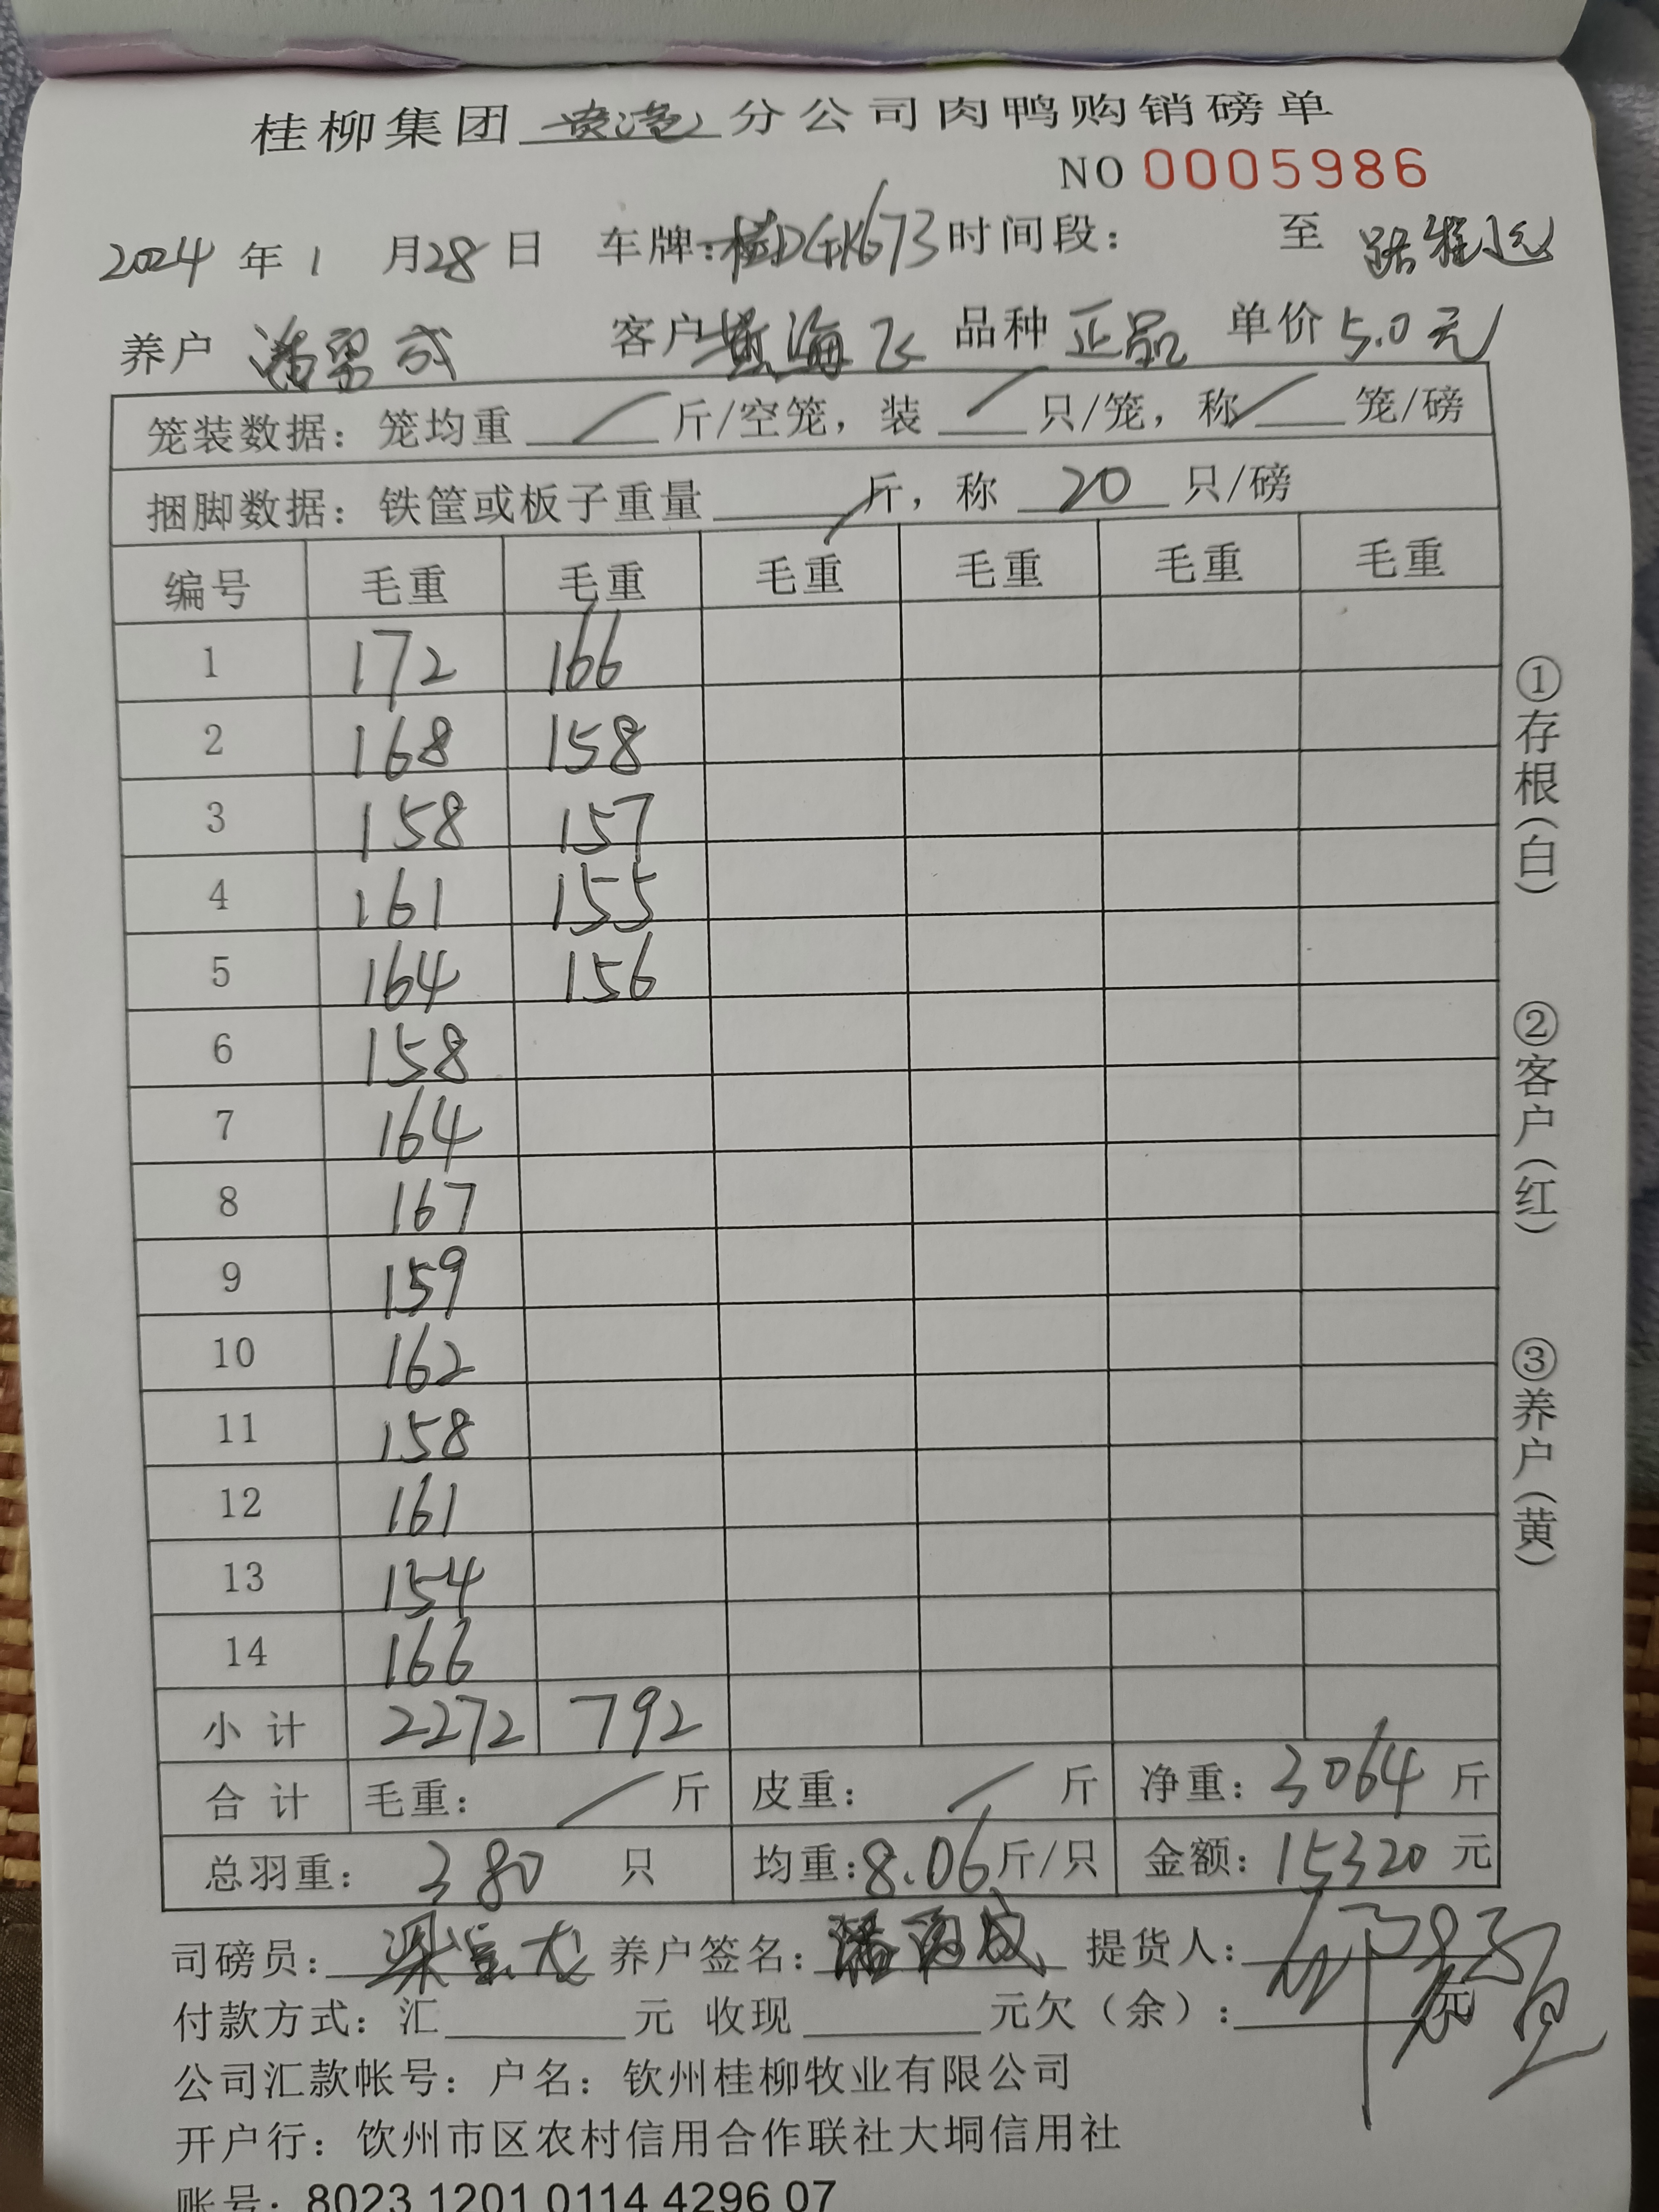 桂柳集团贵港分公司肉鸭购销磅单
NO 0005986
2024年1月28日 车牌:桂DGK673时间段: 至
养户 潘 成 客户黄海飞 品种 正品 单价5.0元
笼装数据: 笼均重 / 斤/空笼, 装 / 只/笼, 称 / 笼/磅
捆脚数据: 铁筐或板子重量 / 斤, 称 20 只/磅
编号 毛重 毛重 毛重 毛重 毛重 毛重
1 172 166
2 168 158
3 158 157
4 161 155
5 164 156
6 158
7 164
8 167
9 159
10 162
11 158
12 161
13 154
14 166
小计 2272 792
合计 毛重: / 斤 皮重: / 斤 净重: 3064 斤
总羽重: 380 只 均重:8.06斤/只 金额: 15320 元
司磅员: 养户签名: 潘 成 提货人:
付款方式: 汇 元 收现 元欠(余): 元
公司汇款帐号: 户名: 钦州桂柳牧业有限公司
开户行: 钦州市区农村信用合作联社大垌信用社
账号: 8023 1201 0114 4296 07
①存根(白)
②客户(红)
③养户(黄)